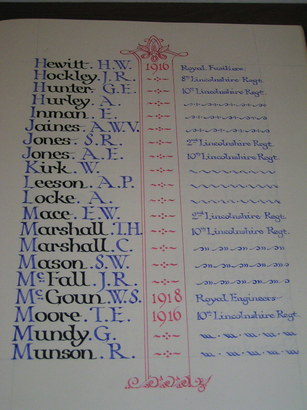 Hewitt. H.W. 1916 Royal Fusiliers.
Hockley. J.R. 8th Lincolnshire Regt.
Hunter. G.E. 10th Lincolnshire Regt.
Hurley. A.
Inman. E.
Jaines. A.W.V.
Jones. S.R. 2nd Lincolnshire Regt.
Jones. A.E. 10th Lincolnshire Regt.
Kirk. W.
Leeson. A.P.
Locke. A.
Mace. E.W. 2nd Lincolnshire Regt.
Marshall. T.H. 10th Lincolnshire Regt.
Marshall. C.
Mason. S.W.
McFall. J.R.
McGoun. W.S. 1918 Royal Engineers
Moore. T.E. 1916 10th Lincolnshire Regt.
Mundy. G.
Munson. R.